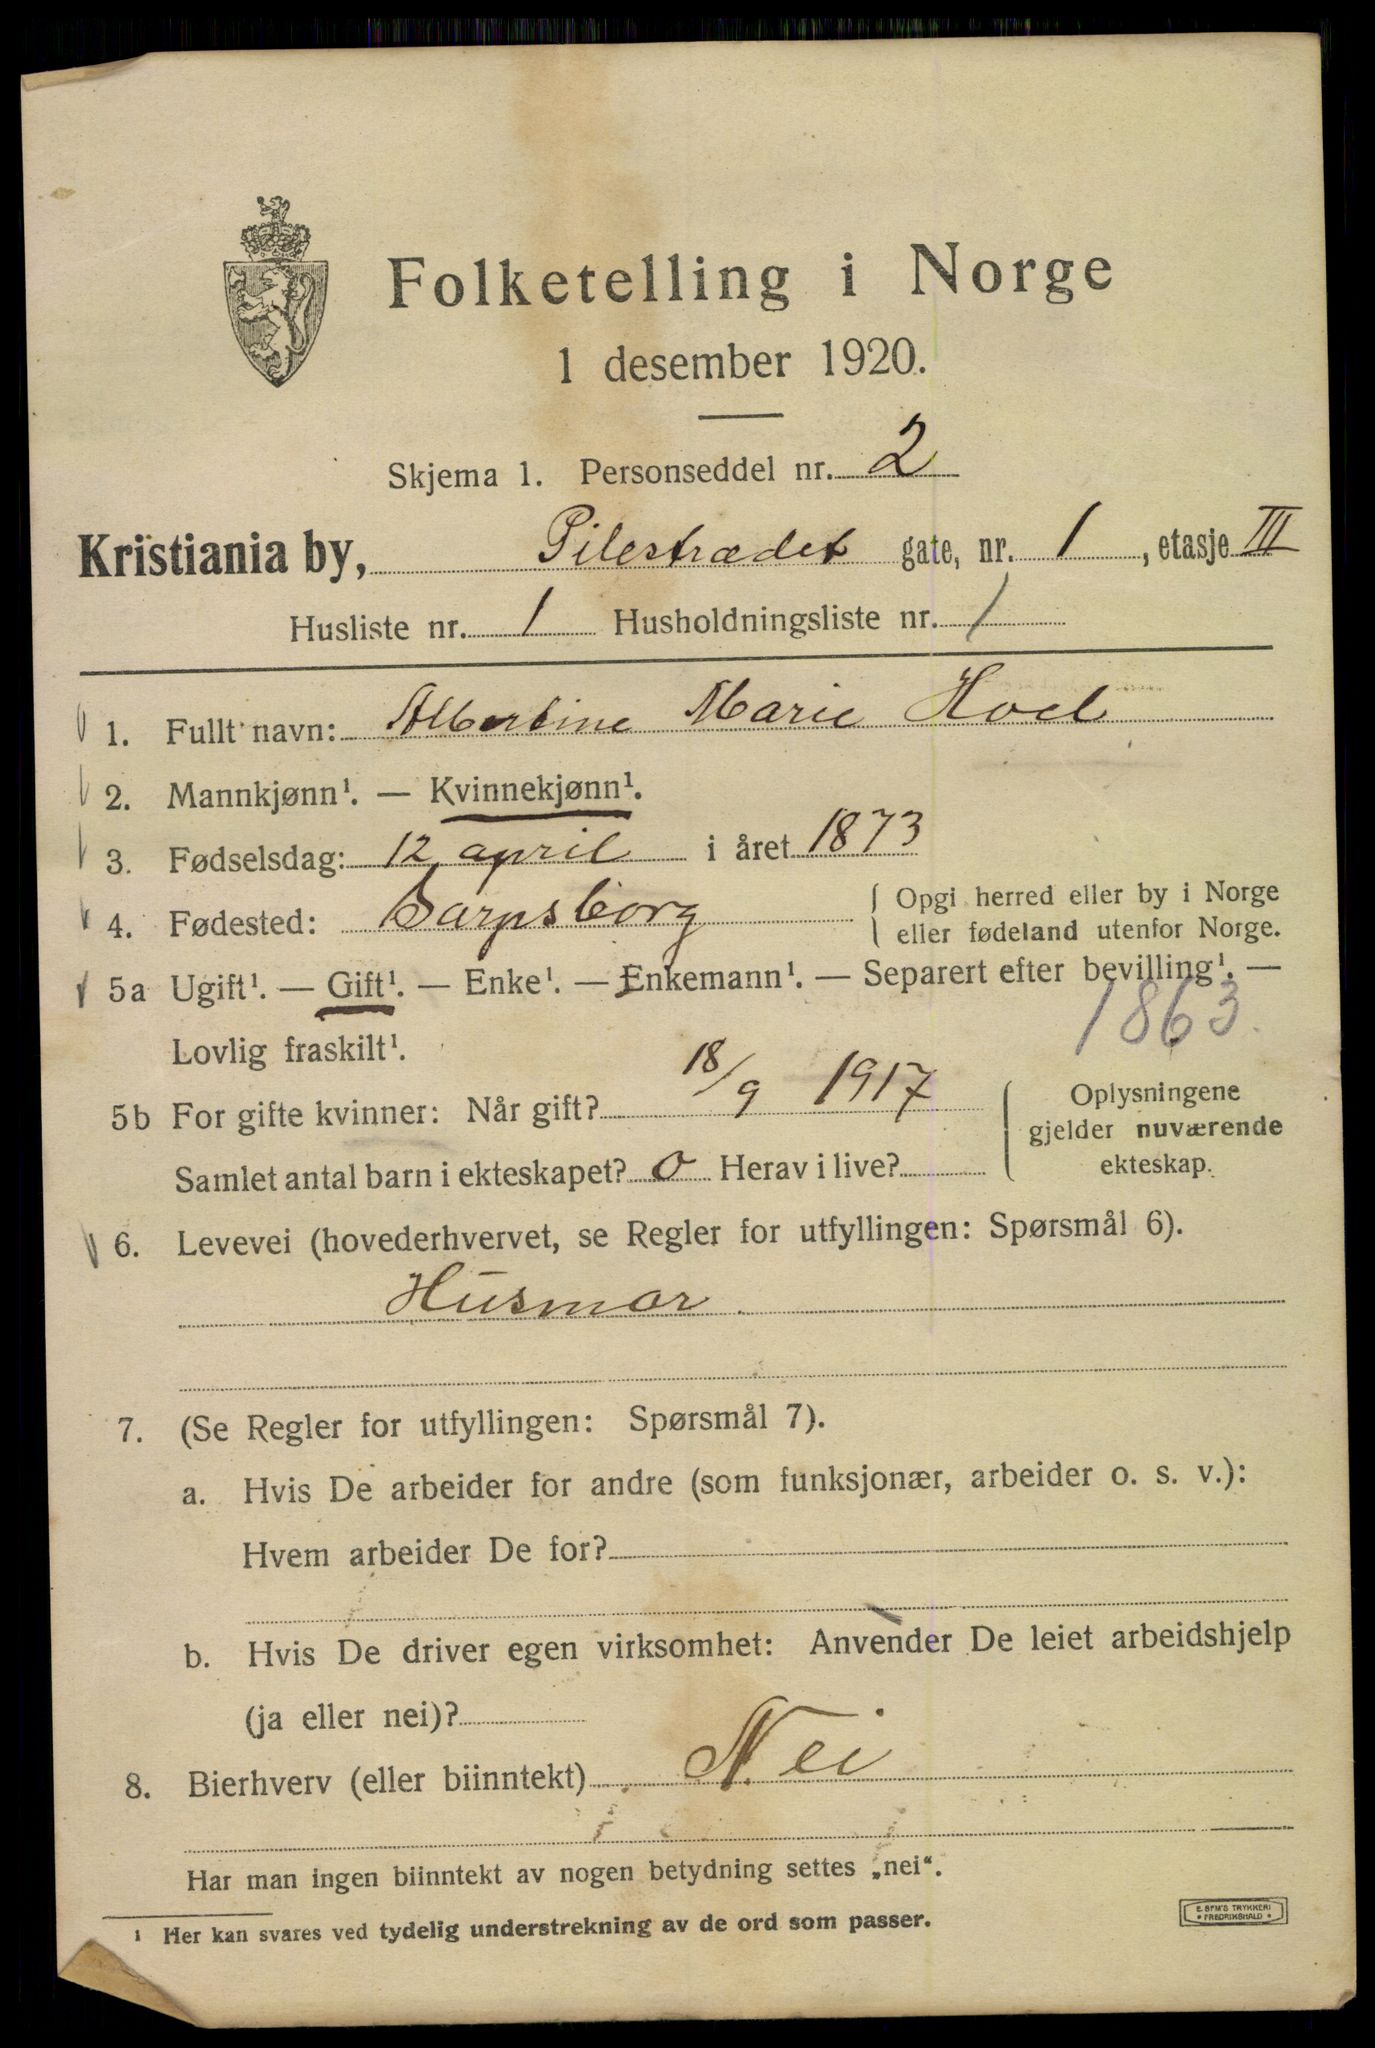 Folketelling i Norge
1 desember 1920.
Skjema 1. Personseddel nr. 2
Kristiania by, Pilestrædet gate, nr. 1, etasje III
Husliste nr. 1 Husholdningsliste nr. 1
1. Fullt navn: Albertine Marie Hoel
2. Mannkjønn¹. — Kvinnekjønn¹.
3. Fødselsdag: 12 april i året 1873
4. Fødested: Sarpsborg { Opgi herred eller by i Norge
eller fødeland utenfor Norge.
5a Ugift¹. — Gift¹. — Enke¹. — Enkemann¹. — Separert efter bevilling¹. —
Lovlig fraskilt¹. 1863.
5b For gifte kvinner: Når gift? 18/9 1917
Samlet antal barn i ekteskapet? 0 Herav i live?
Oplysningene
gjelder nuværende
ekteskap.
6. Levevei (hovederhvervet, se Regler for utfyllingen: Spørsmål 6).
Husmor.
7. (Se Regler for utfyllingen: Spørsmål 7).
a. Hvis De arbeider for andre (som funksjonær, arbeider o. s. v.):
Hvem arbeider De for?
b. Hvis De driver egen virksomhet: Anvender De leiet arbeidshjelp
(ja eller nei)?
8. Bierhverv (eller biinntekt) Nei
Har man ingen biinntekt av nogen betydning settes „nei“.
¹ Her kan svares ved tydelig understrekning av de ord som passer.
E. SEM'S TRYKKERI
• FREDRIKSHALD •